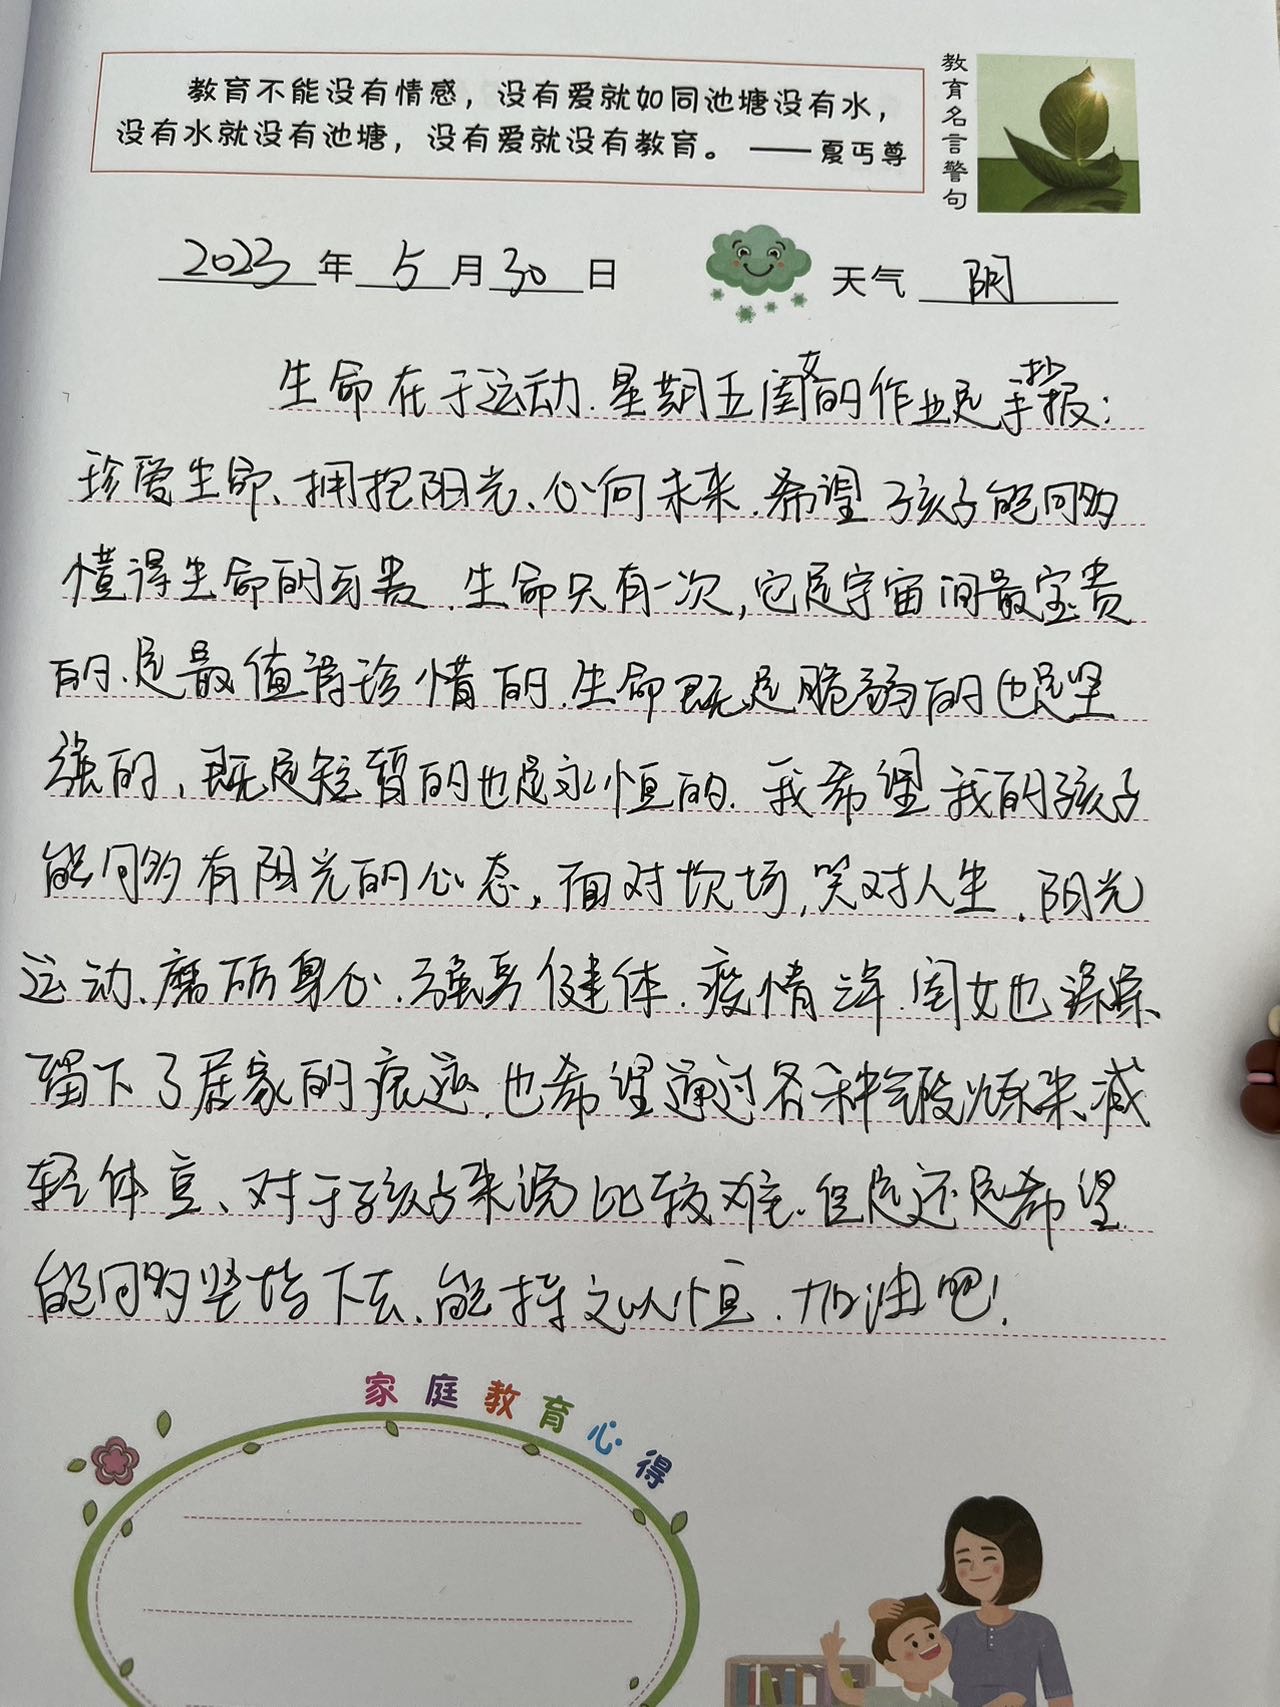 教育不能没有情感，没有爱就如同池塘没有水，
没有水就没有池塘，没有爱就没有教育。 —— 夏丏尊
教育名言警句
2023年5月30日 天气 阴
生命在于运动.星期五闺女的作业是手抄报:
珍爱生命、拥抱阳光、心向未来.希望孩子能够
懂得生命的可贵.生命只有一次,它是宇宙间最宝贵
的.是最值得珍惜的.生命既是脆弱的也是坚
强的,既是短暂的也是永恒的.我希望我的孩子
能够有阳光的心态,面对坎坷,笑对人生.阳光
运动、磨砺身心.强身健体.疫情三年.闺女也深深
留下了居家的痕迹.也希望通过各种锻炼来减
轻体重、对于孩子来说比较难.但是还是希望
能够坚持下去、能持之以恒.加油吧!
家庭教育心得